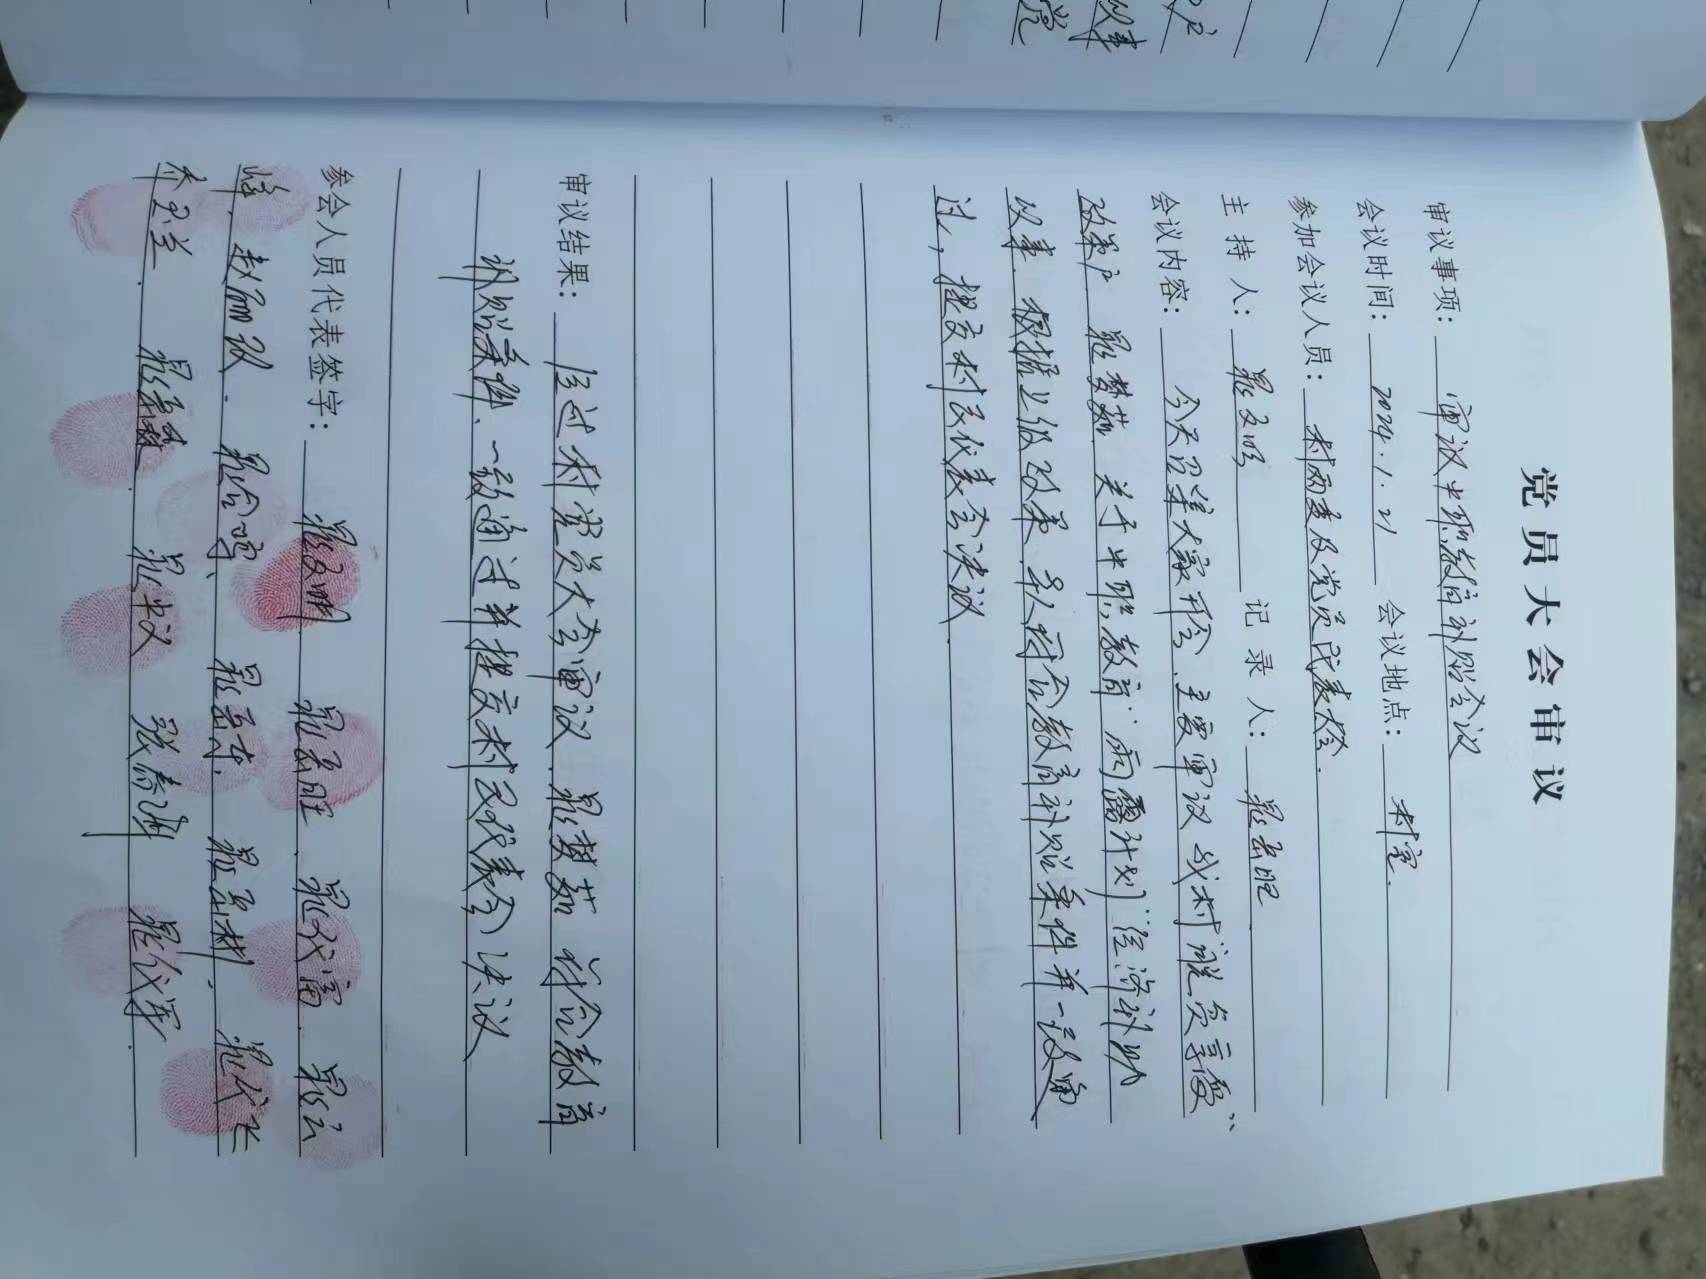 党员大会审议
审议事项: 审议中职教育补贴会议
会议时间: 2024.1.21 会议地点: 村室.
参加会议人员: 村两委及党员代表大会.
主持人: 晁文明 记录人: 晁岳旺
会议内容: 今天召集大家开会.主要审议我村“脱贫享受”
政策户 晁梦茹.关于中职教育“雨露计划”经济补助
议事.根据上级政策.本人符合教育补贴条件并一致通
过,提交村民代表会决议.
审议结果: 经过村党员大会审议.晁梦茹 符合教育
补贴条件.一致通过并提交村民代表会决议
参会人员代表签字: 晁文明 晁岳旺.晁代富.晁云
峰.赵丽 . 晁合鸣、晁岳东.晁岳彬.晁代飞
乔玉兰.晁岳森.晁中义 张春 晁代军.
户
议事
党